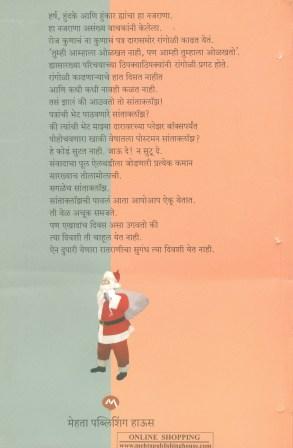 हर्ष, हुंदके आणि हुंकार ह्यांचा हा नजराणा.
हा नजराणा असंख्य वाचकांनी केलेला.
रोज कुणाचं ना कुणाचं पत्र दारासमोर रांगोळी काढत येतं.
'तुम्ही आम्हाला ओळखत नाही, पण आम्ही तुम्हाला ओळखतो'.
ह्यासारख्या परिचयाच्या ठिपक्याठिपक्यांनी रांगोळी प्रगट होते.
रांगोळी काढणाऱ्याचे हात दिसत नाहीत
आणि कधी कधी नावही कळत नाही.
तसं झालं की आठवतो तो सांताक्लॉझ!
पत्रांची भेट पाठवणारे सांताक्लॉझ?
की त्यांची भेट माझ्या दारावरच्या प्लेझर बॉक्सपर्यंत
पोहोचवणारा खाकी वेषातला पोस्टमन सांताक्लॉझ?
हे कोडं सुटत नाही. जाऊ दे! न सुटू दे.
संवादाचा पूल ऐलथडीला जोडणारी प्रत्येक कमान
सारख्याच तोलामोलाची.
सगळेच सांताक्लॉझ.
सांताक्लॉझची पावलं आता आपोआप ऐकू येतात.
ती वेळ अचूक समजते.
पण एखादाच दिवस असा उगवतो की
त्या दिवशी ती चाहूल येत नाही.
ऐन दुपारी येणारा रातराणीचा सुगंध त्या दिवशी येत नाही.
मेहता पब्लिशिंग हाऊस
ONLINE SHOPPING
www.mehtapublishinghouse.com